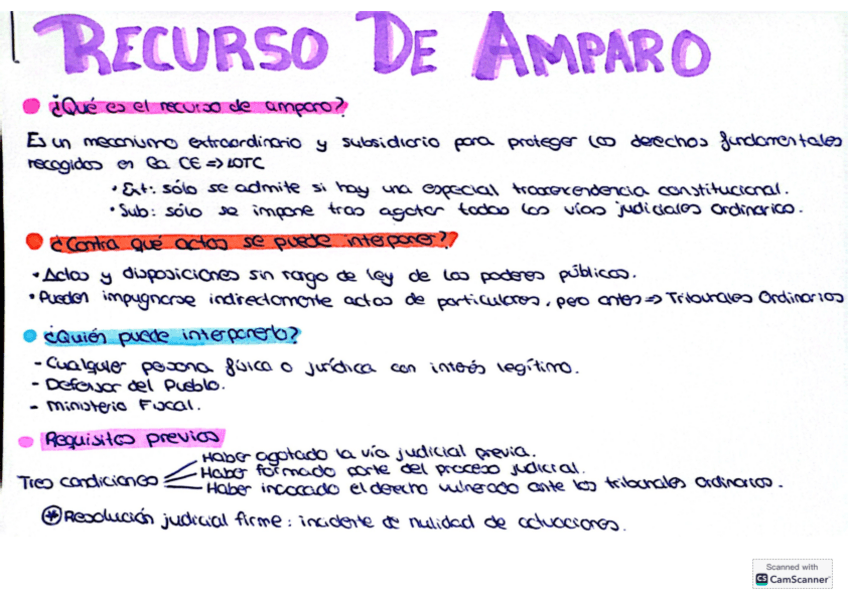 RECURSO DE AMPARO
¿Qué es el recurso de amparo?
Es un mecanismo extraordinario y subsidiario para proteger los derechos fundamentales
recogidos en la CE => LOTC
• Ext: sólo se admite si hay una especial trascendencia constitucional.
• Sub: sólo se impone tras agotar todas las vías judiciales ordinarias.
¿Contra qué actos se puede interponer?
• Actos y disposiciones sin rango de ley de los poderes públicos.
• Pueden impugnarse indirectamente actos de particulares, pero antes => Tribunales Ordinarios
¿Quién puede interponerlo?
- Cualquier persona física o jurídica con interés legítimo.
- Defensor del Pueblo.
- Ministerio Fiscal.
Requisitos previos
Haber agotado la vía judicial previa.
Tres condiciones Haber formado parte del proceso judicial.
Haber incocado el derecho vulnerado ante los tribunales ordinarios.
* Resolución judicial firme: incidente de nulidad de actuaciones.
Scanned with
CS CamScanner